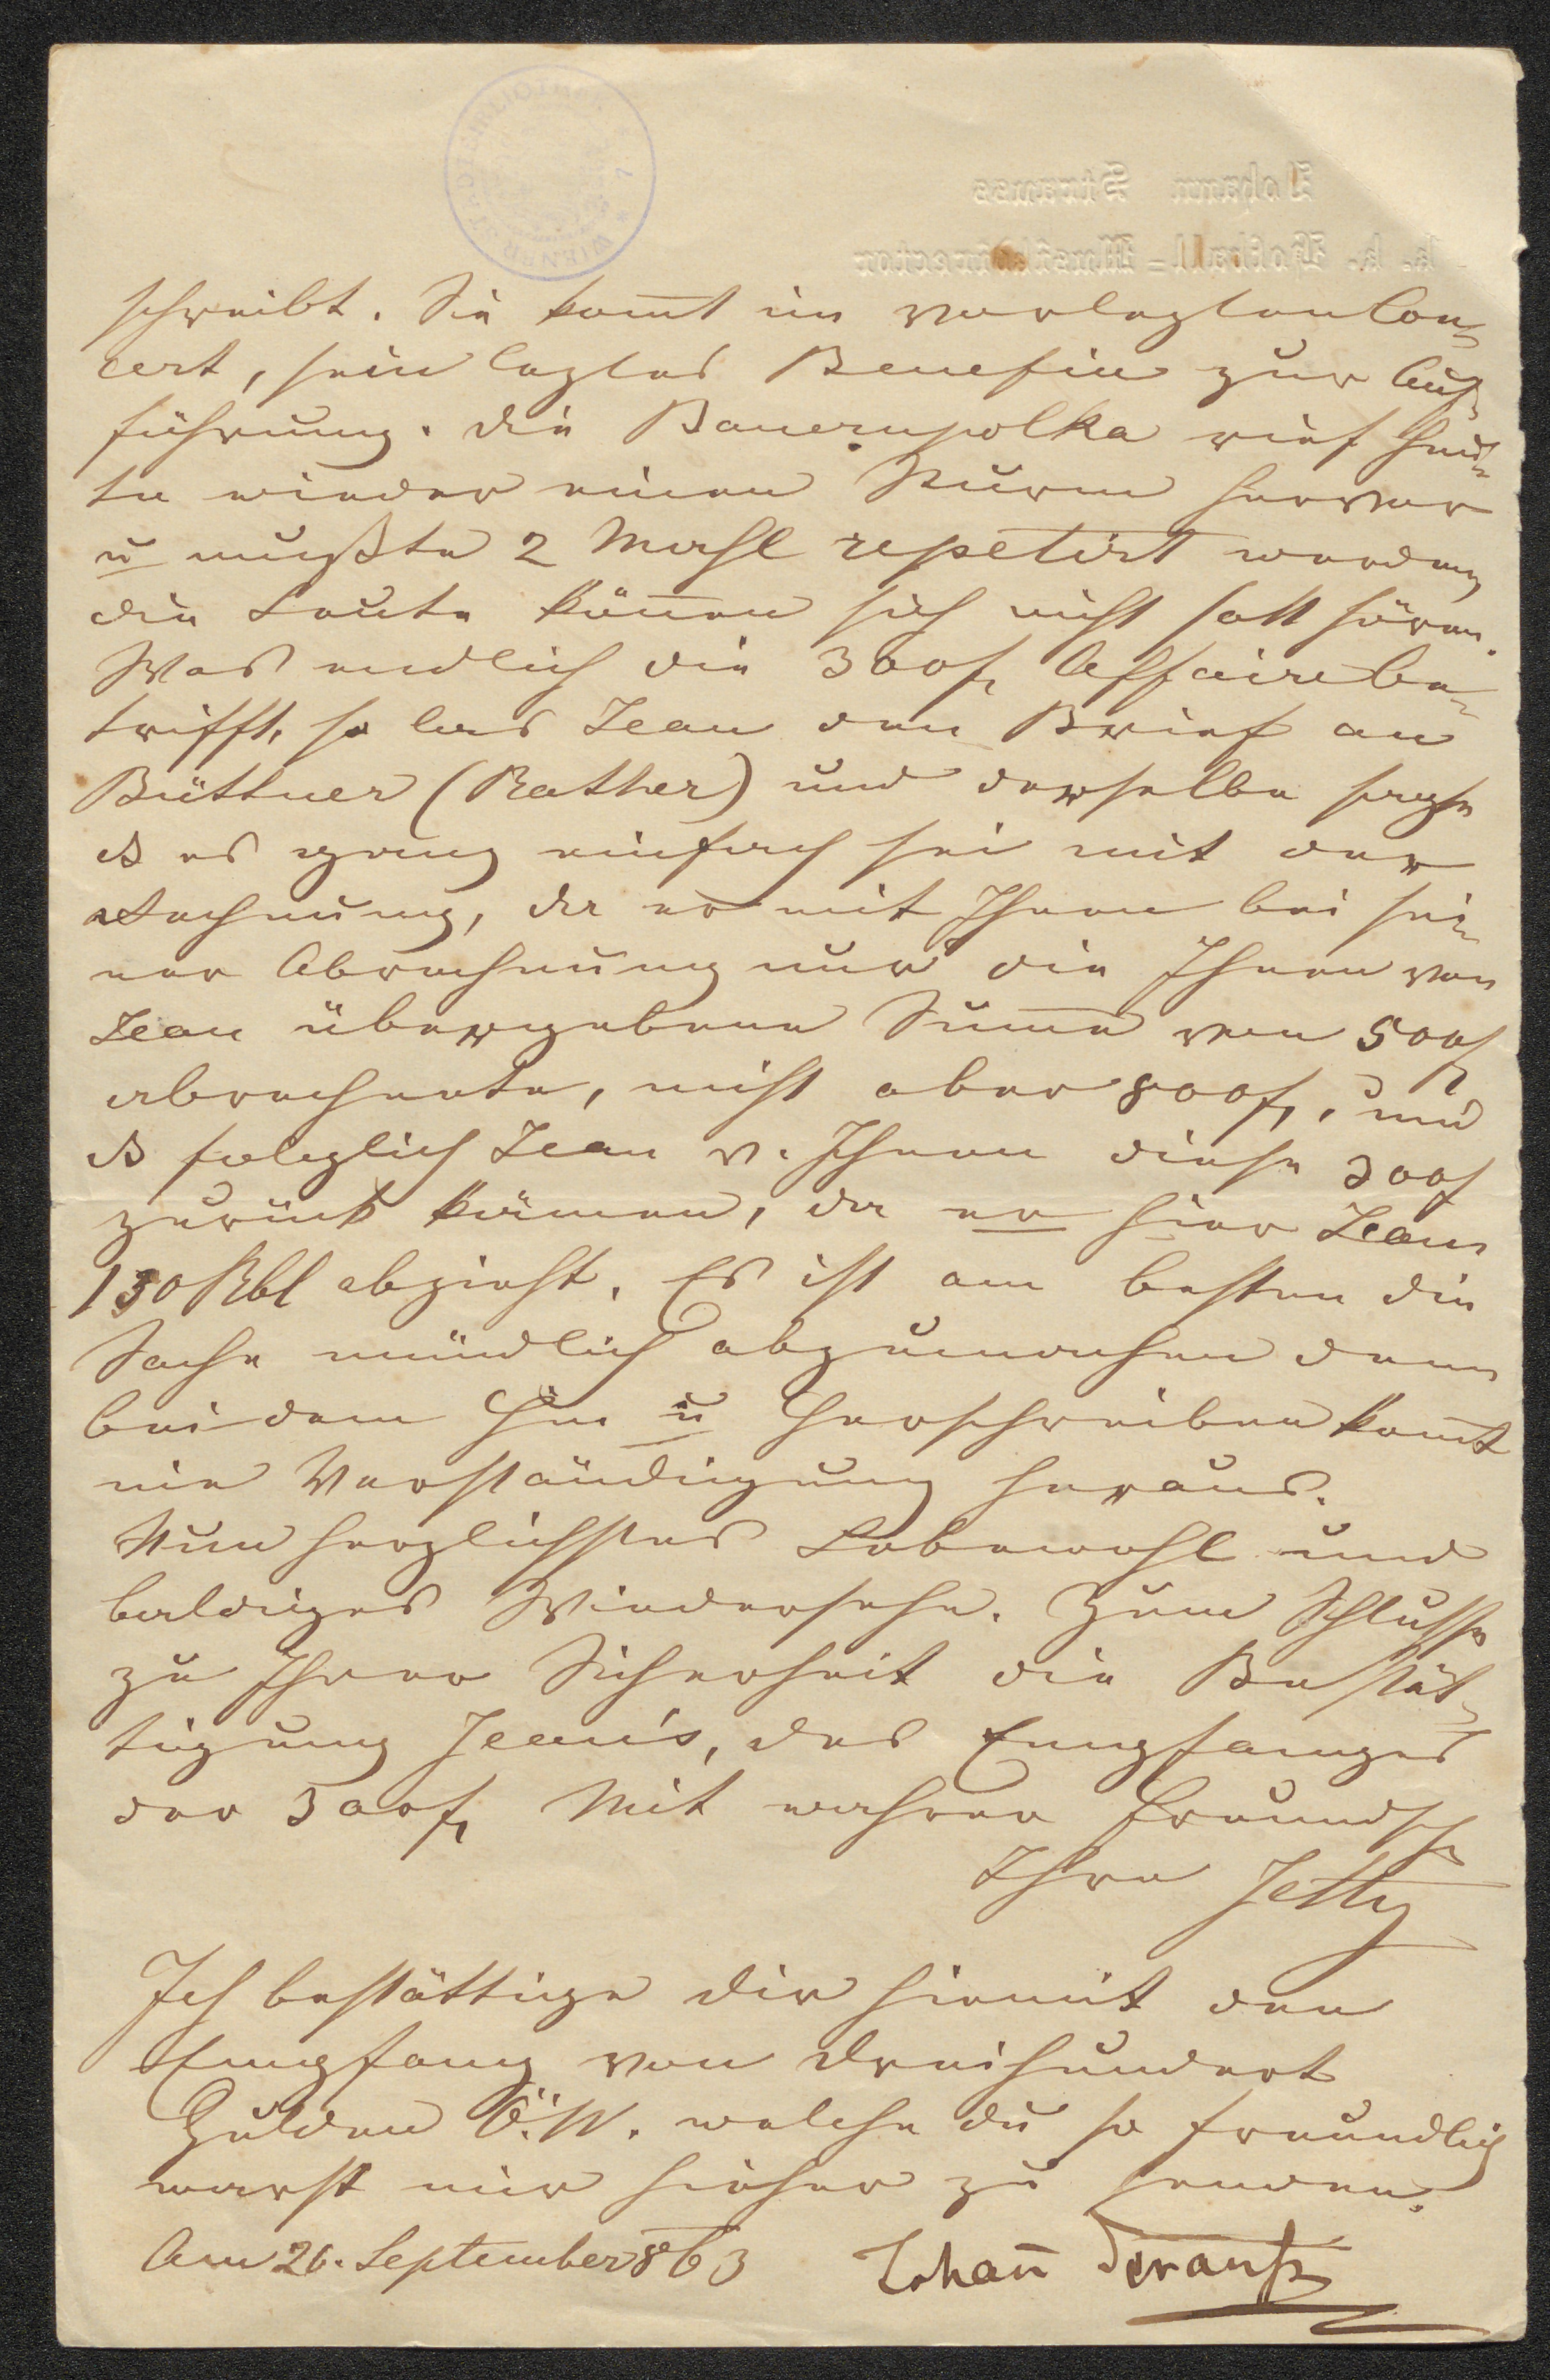 Johann Strauss
k. k. Hofball-Musikdirector
schreibt. Sie kom̄t im vorlezten Con-
cert, sein leztes Benefiz zur Auf-
führung. Die Bauernpolka rief heu-
te wieder einen Sturm hervor
u mußte 2 Mahl repetirt werden,
die Leute kön̄en sich nicht satt hören.
Was endlich die 300f. Affaire be-
trifft, so las Jean den Brief an
Büttner (Rather) und derselbe sagte
es ganz einfach sei mit der
Rechnung, da er mit Ihnen bei sei-
ner Abrechnung nur die Ihnen von
Jean übergebene Sum̄e von 500f
abrechnete, nicht aber 800f., und
folglich Jean v. Ihnen diese 300f
zurück kämen, da er hier Jean
130 Rbl abzieht. Es ist am besten die
Sache mündlich abzumachen denn
bei dem Hin u Herschreiben kom̄t
nie Verständigung heraus.
Nun herzlichstes Lebewohl und
baldiges Wiedersehn. Zum Schlusse
zu Ihrer Sicherheit die Bestät-
tigung Jean's, des Empfanges
der 300f. Mit wahrer Freundsch
Ihre Jetty
Ich bestättige dir hiemit den
Empfang von dreihundert
Gulden Ö.W. welche du so freundlich
warst mir hieher zu senden.
Am 26. September 863 Johan̄ Strauß